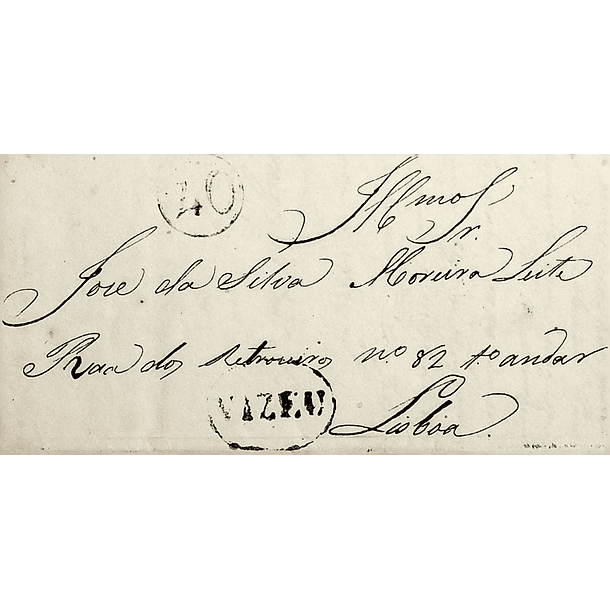 40
Illmo Sr.
Jose da Silva Moreira Leite
Rua dos Retrozeiros nº 82 4º andar
VIZEU
Lisboa.